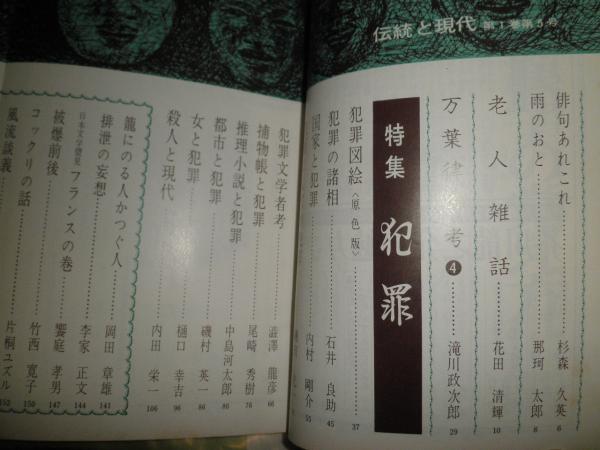 伝統と現代 第1巻第5号
俳句あれこれ 杉森 久英 6
雨のおと 那珂 太郎 8
老人雑話 花田 清輝 10
万葉律令考 4 滝川政次郎 29
特集 犯罪
犯罪図絵〈原色版〉 37
犯罪の諸相 石井 良助 45
国家と犯罪 内村 剛介 55
犯罪文学者考 澁澤 龍彦 66
捕物帳と犯罪 尾崎 秀樹 76
推理小説と犯罪 中島河太郎 80
都市と犯罪 磯村 英一 86
女と犯罪 樋口 幸吉 96
殺人と現代 内田 栄一 106
籠にのる人かつぐ人 岡田 章雄 141
排泄の妄想 李家 正文 144
日本文学発見 フランスの巻 饗庭 孝男 147
被爆前後 竹西 寛子 150
コックリの話 片桐ユズル 152
風流談義